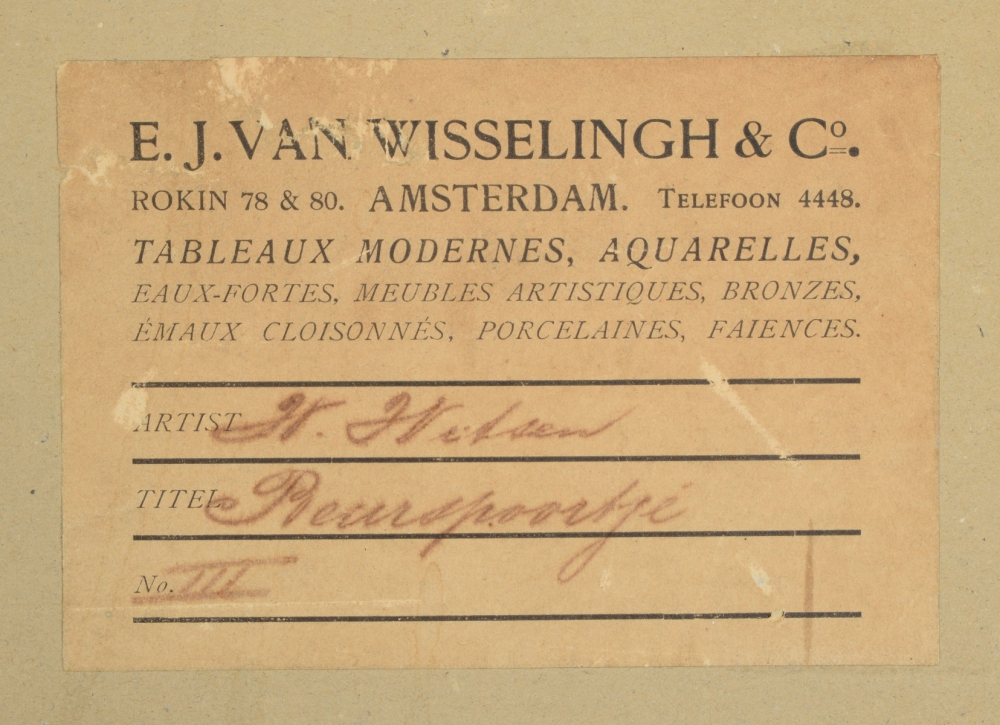 E. J. VAN WISSELINGH & Cº.
ROKIN 78 & 80. AMSTERDAM. TELEFOON 4448.
TABLEAUX MODERNES, AQUARELLES,
EAUX-FORTES, MEUBLES ARTISTIQUES, BRONZES,
ÉMAUX CLOISONNÉS, PORCELAINES, FAIENCES.
ARTIST W. Witsen
TITEL Beurspoortje
No. III